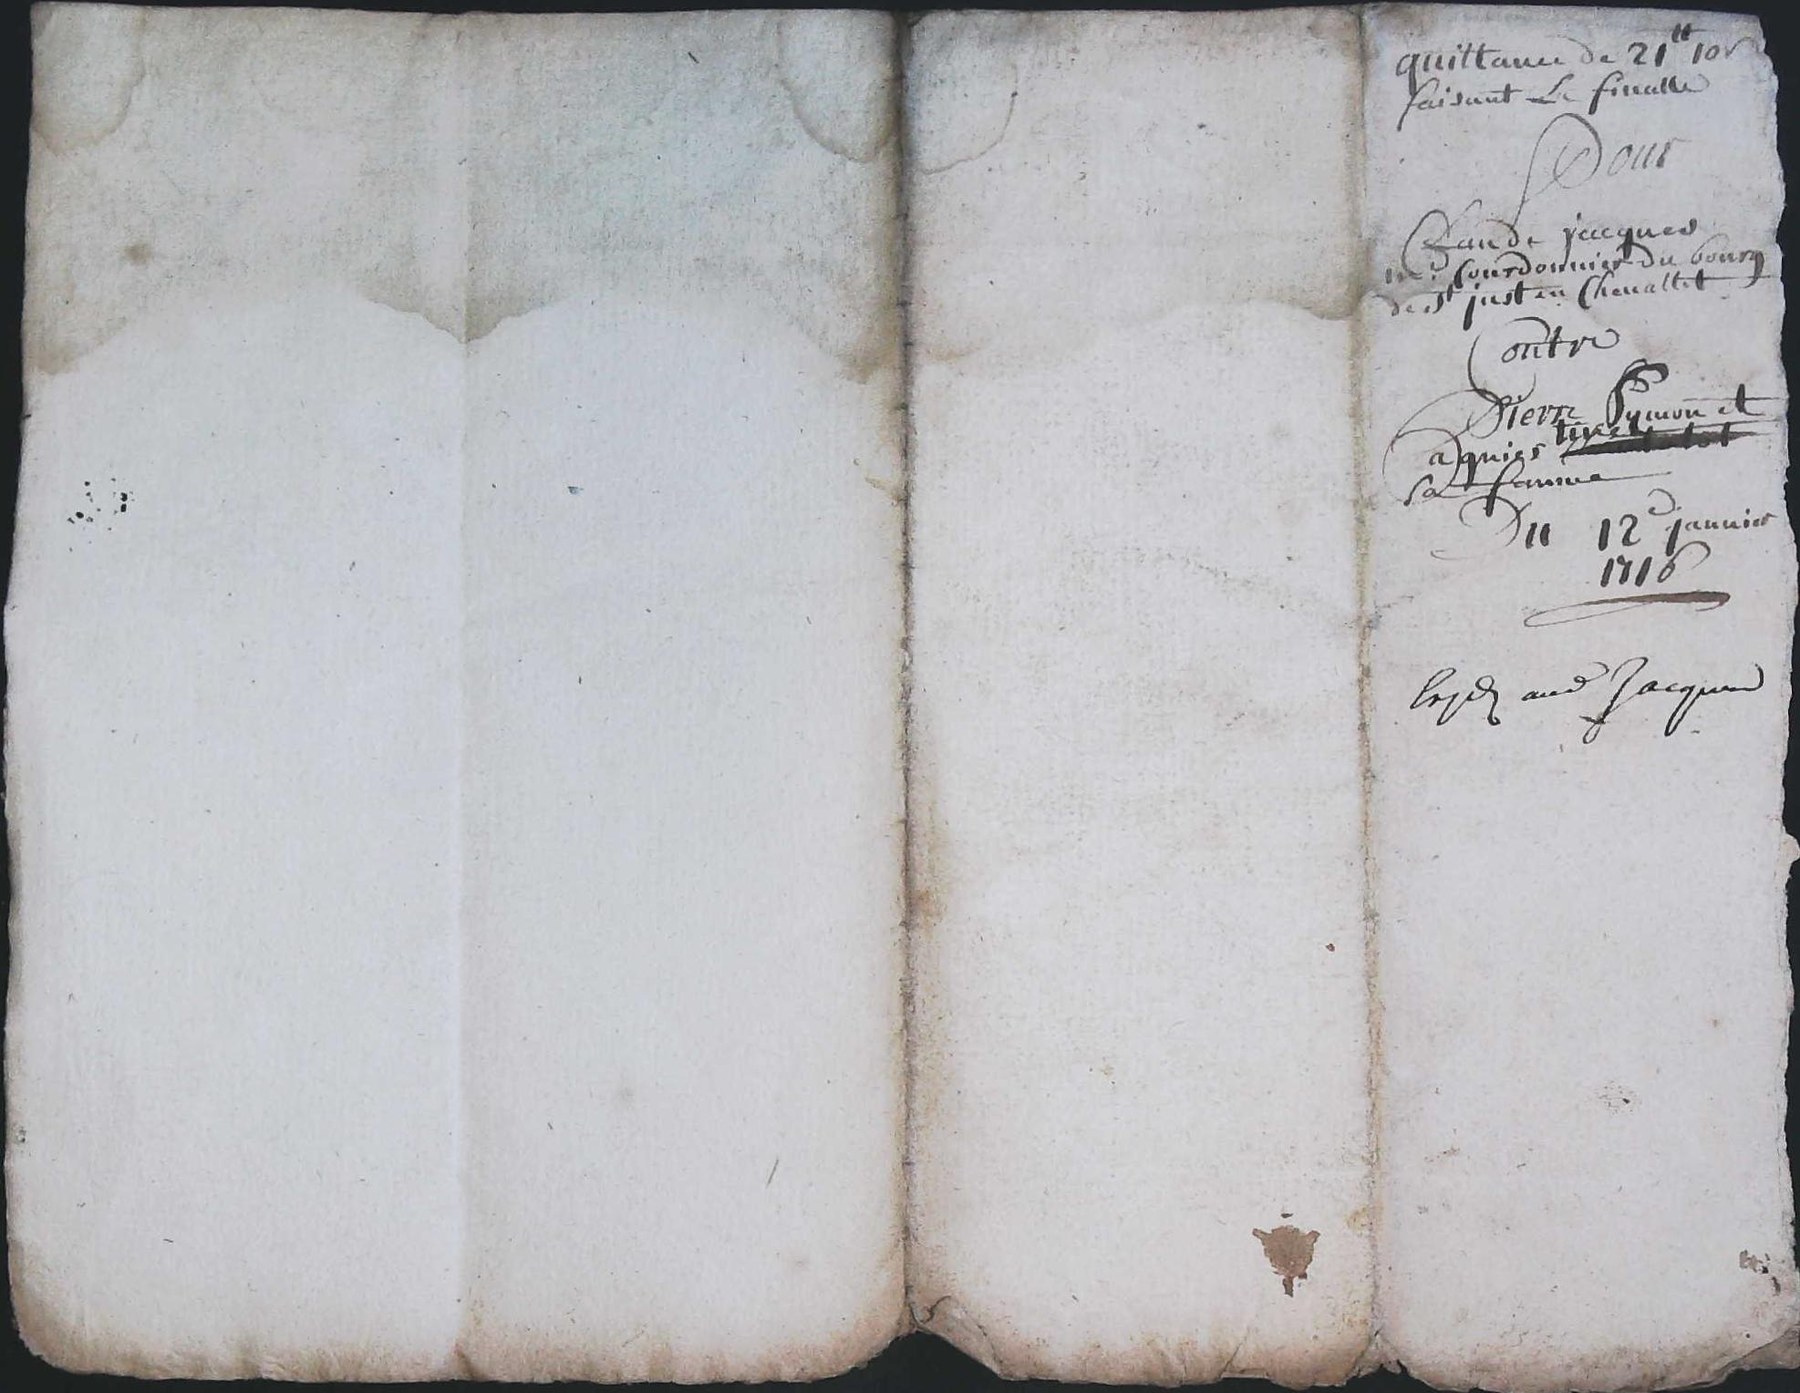 quittance de 21ᵗᵗ 10ˢ
faisant Le finalle
Pour
Claude jacques
mᵉ Courdonnier du bourg
de sᵗ just en Chevallet
Contre
Pierre Symon et
agnies
sa famme
Du 12ᵉ janvier
1716
and Jacques